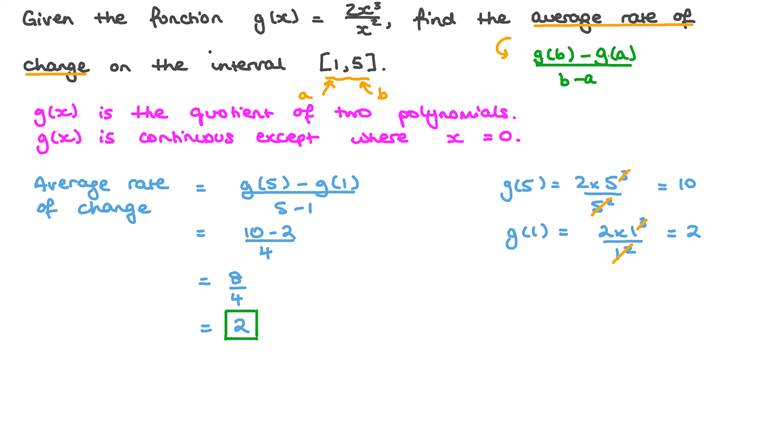 Given the function g(x) = 2x³/x², find the average rate of
change on the interval [1,5].
g(b) - g(a) / b - a
a b
g(x) is the quotient of two polynomials.
g(x) is continuous except where x = 0.
Average rate of change = g(5) - g(1) / 5 - 1
= 10 - 2 / 4
= 8 / 4
= 2
g(5) = 2 x 5³ / 5² = 10
g(1) = 2 x 1³ / 1² = 2